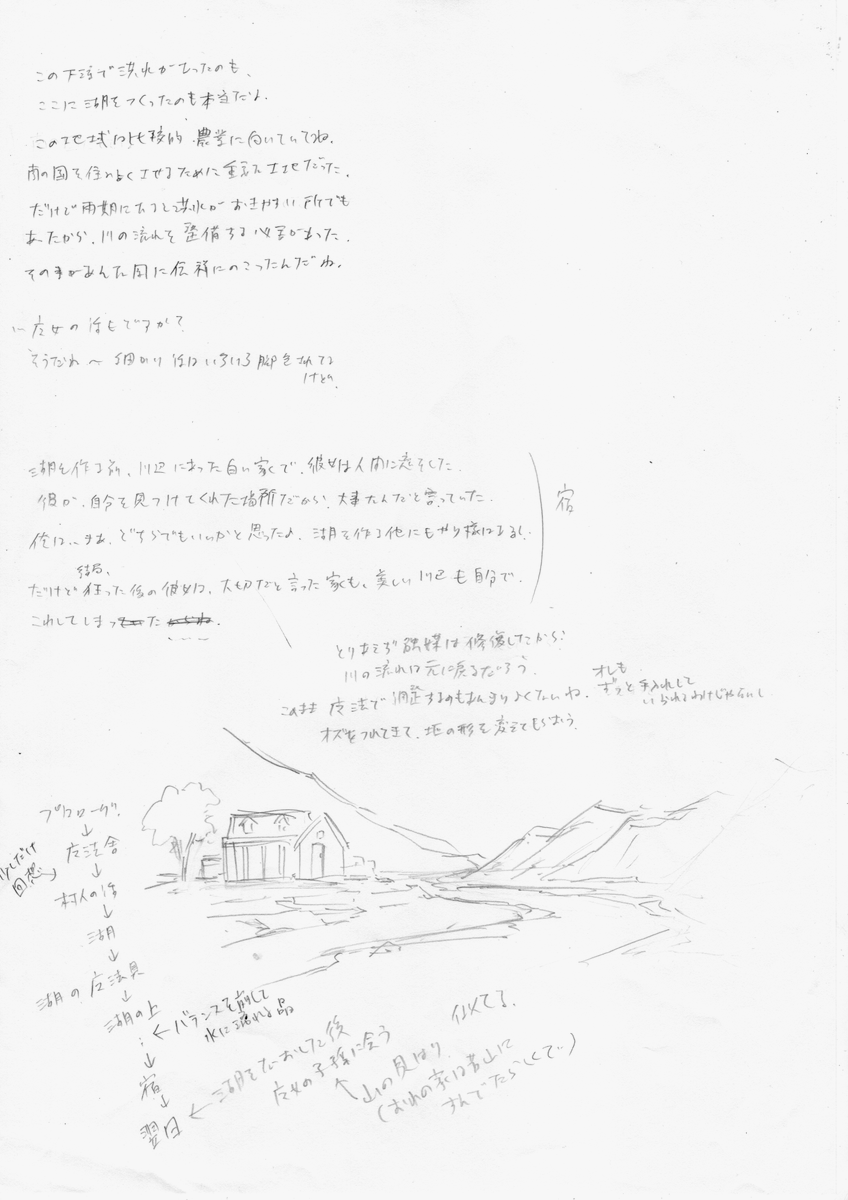 この下流で洪水があったのも、
ここに湖をつくったのも本当だよ.
この地域は比較的 農業に向いていてね.
南の国を住みよくさせるために重要な土地だった.
だけど雨期になると洪水がおきやすい所でも
あったから、川の流れを整備する必要があった.
その事があんな風に伝承にのこったんだね.
… 魔女の話もですか?
そうだね〜 細かい話はいろいろ脚色されてる
けどね.
湖を作る前、川辺にあった白い家で、彼女は人間に恋をした.
彼が、自分を見つけてくれた場所だから、大事なんだと言っていた.
俺は…まぁ、どちらでもいいかと思ったよ. 湖を作る他にもやり様はあるし.
宿
結局、
だけど 狂った後の彼女は、大切だと言った家も、美しい川辺も自分で.
こわしてしまった.
とりあえず 触媒は修復したから
川の流れは元に戻るだろう.
このまま 魔法で調整するのもあんまりよくないね.
オレも
ずっと手入れして
いられるわけじゃないし
オズをつれてきて、地の形を変えてもらおう.
プロローグ.
↓
魔法舎
少しだけ
回想
↓
村人の話
↓
湖
↓
湖の魔法具
↓
湖の上
← バランスを崩して
水に濡れる晶
↓
宿
↓
翌日 ← 湖をなおした後
魔女の子孫に会う
↑山の見はり
似てる.
(おれの家は昔山に
すんでたらしくて…)